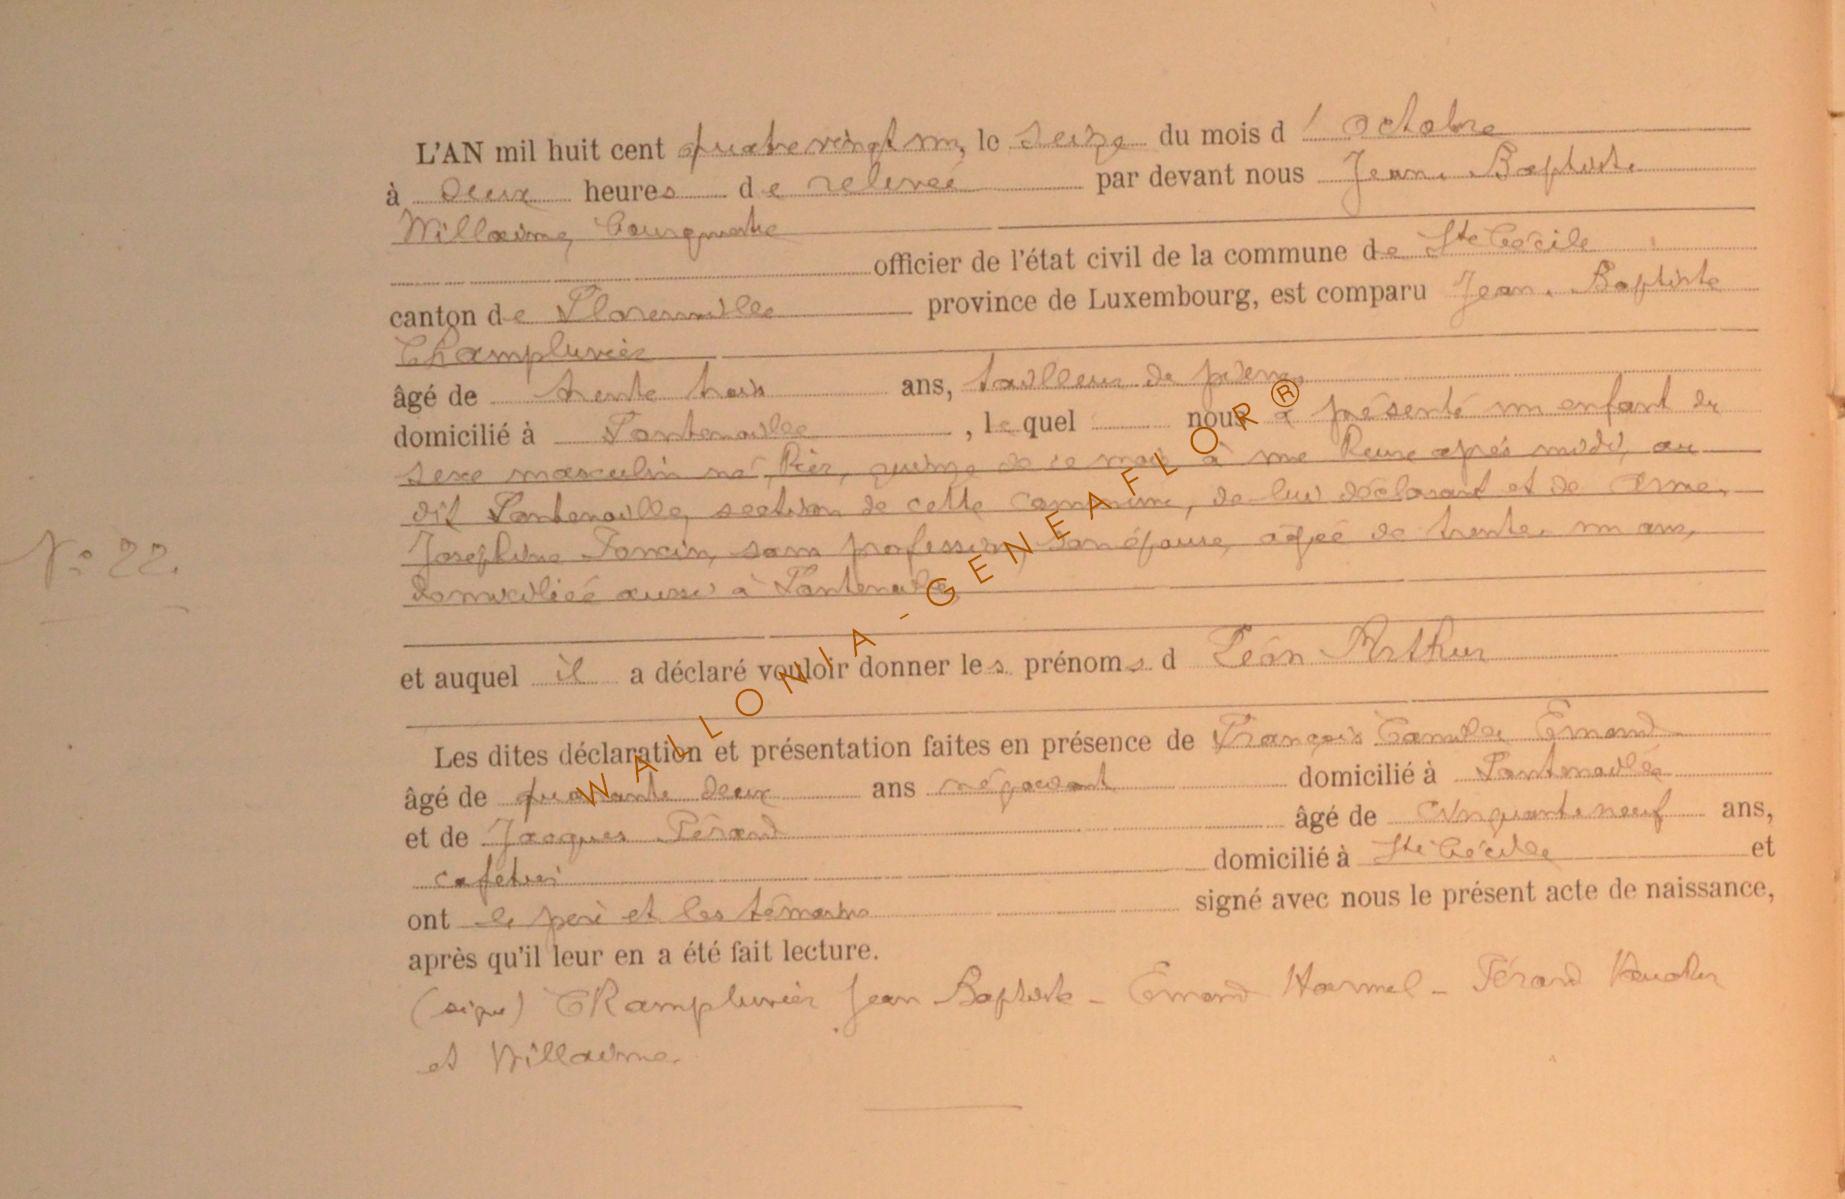 L'AN mil huit cent quatre vingt un, le seize du mois d' octobre
à deux heures de relevée par devant nous Jean. Baptiste
Willaime, bourgmestre
officier de l'état civil de la commune de Ste Cécile
canton de Florenville province de Luxembourg, est comparu Jean. Baptiste
Champluvier
âgé de trente trois ans, tailleur de pierres
domicilié à Fontenoille, lequel nous a présenté un enfant du
sexe masculin né hier, quinze de ce mois à une heure après midi, au
dit Fontenoille, section de cette commune, de lui déclarant et de Anne.
Joséphine Poncin, sans profession, son épouse, âgée de trente. un ans,
domiciliée aussi à Fontenoille
N° 22.
et auquel il a déclaré vouloir donner les prénoms d Léon Arthur
Les dites déclaration et présentation faites en présence de François Camille Emond
âgé de quarante deux ans négociant domicilié à Fontenoille
et de Jacques Pérard âgé de cinquante neuf ans,
cafetier domicilié à Ste Cécile et
ont le père et les témoins signé avec nous le présent acte de naissance,
après qu'il leur en a été fait lecture.
(signé) Champluvier Jean Baptiste - Emond Harmel - Pérard
et Willaime.
WALLONIA - GENEAFLOR®